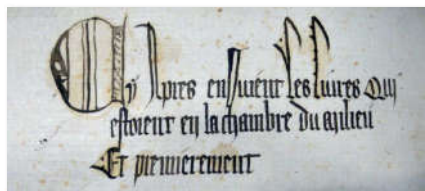 Cy Apres ensuient Les liures Qui
estoient en la chambre du milieu
Et premierement